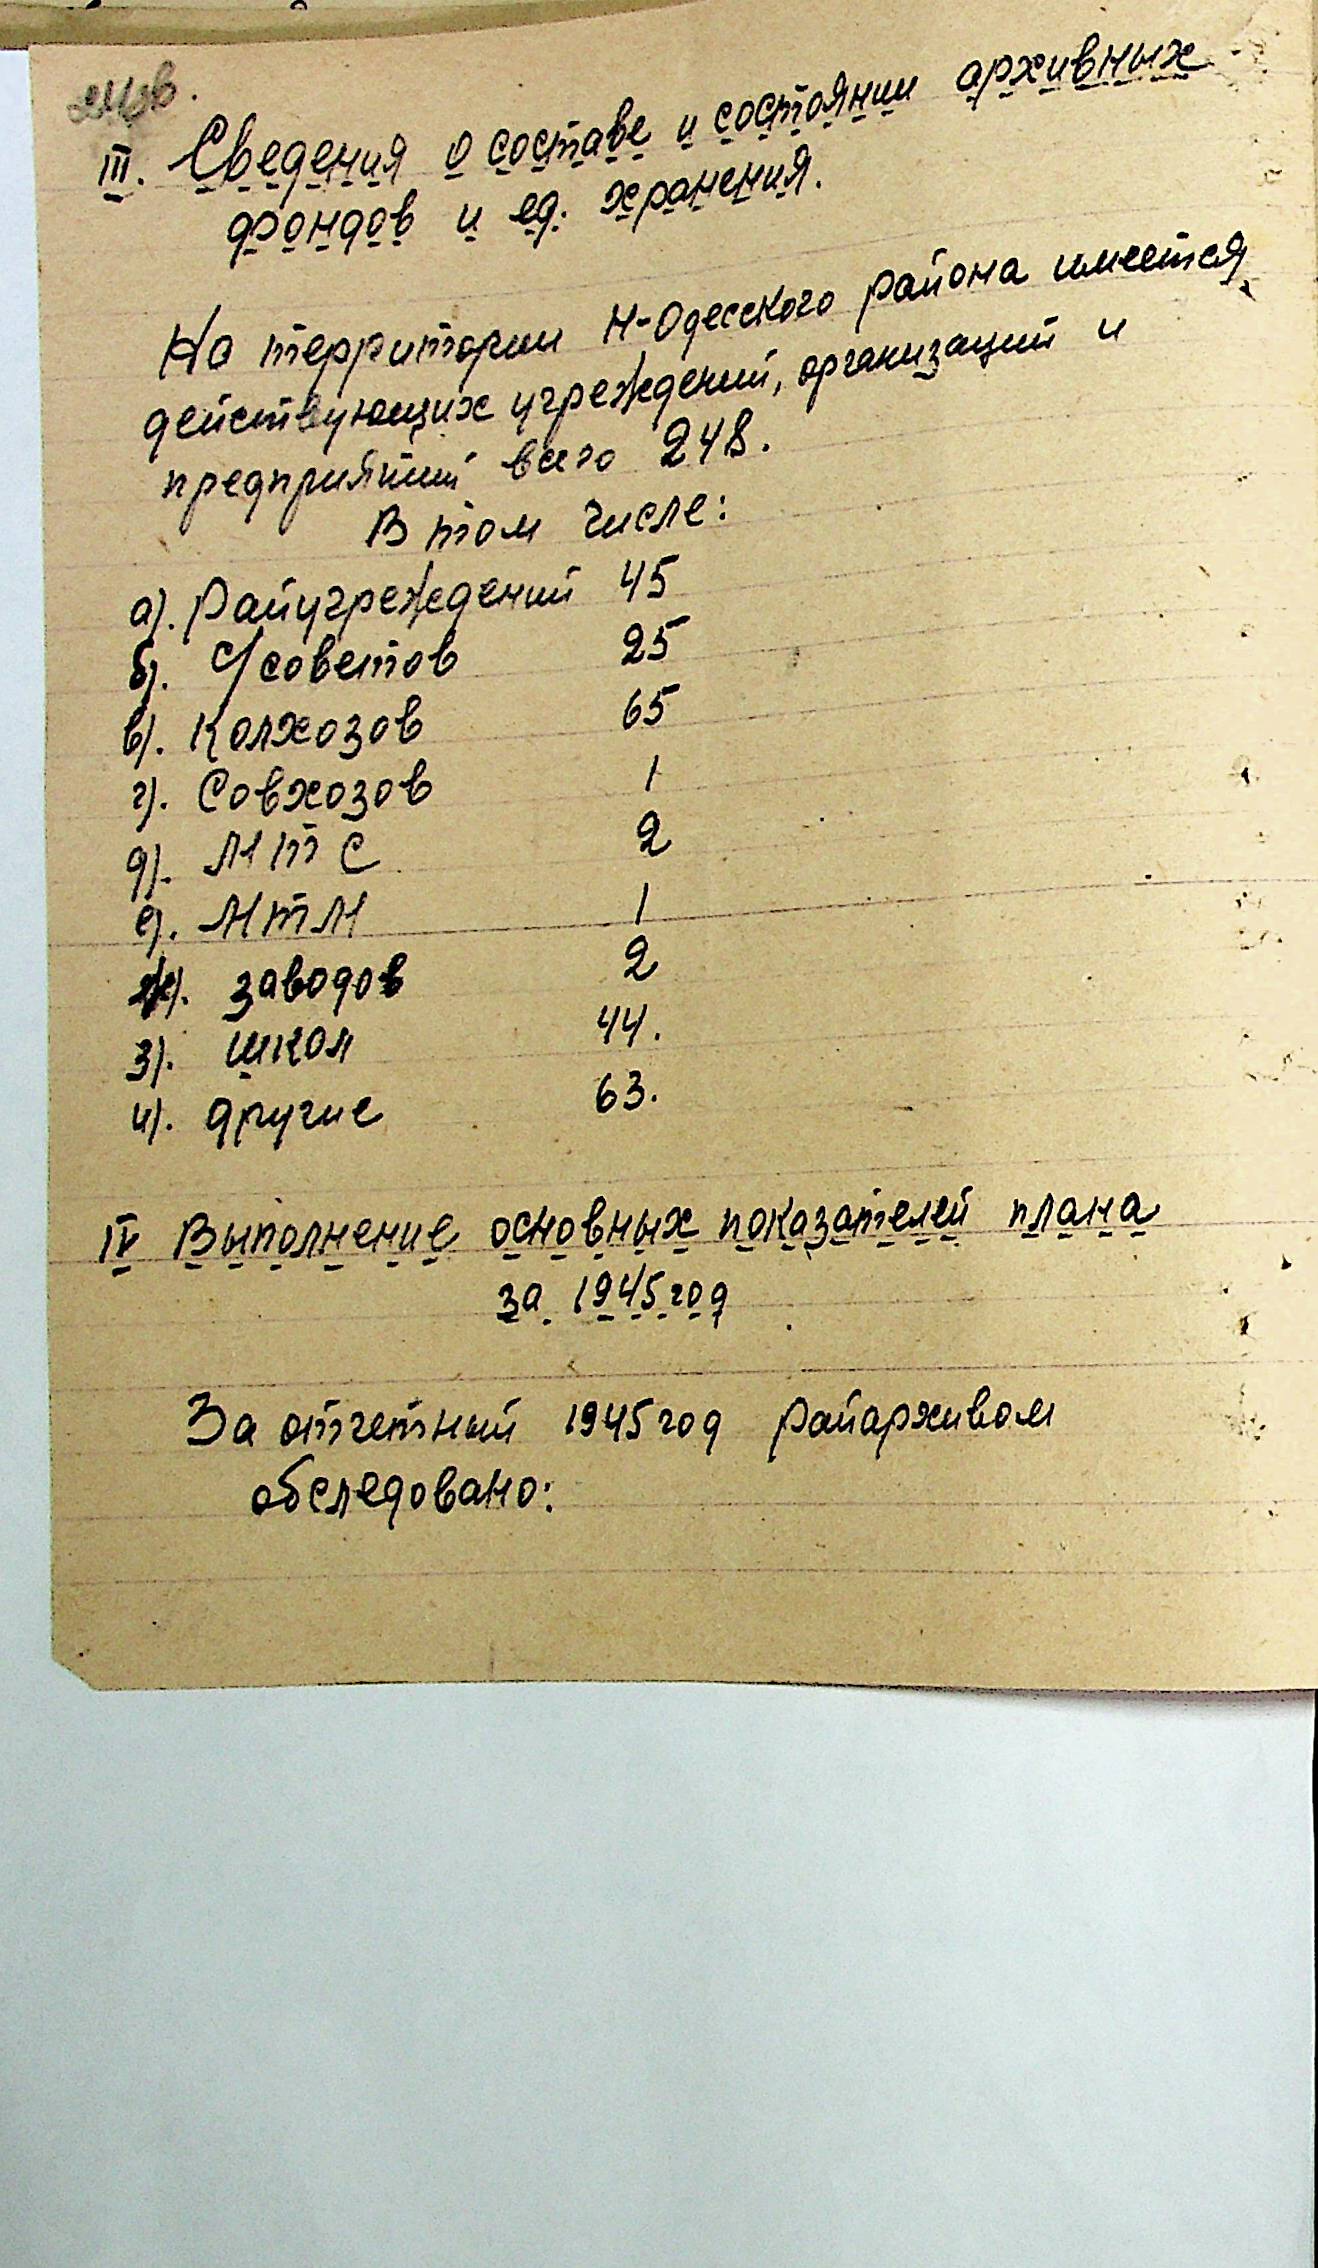 III. Сведения о составе и состоянии архивных
фондов и ед. хранения.
На территории Н-Одесского района имеется
действующих учреждений, организаций и
предприятий всего 248.
В том числе:
а). Райучреждений 45
б). С/советов 25
в). Колхозов 65
г). Совхозов 1
д). МТС 2
е). МТМ 1
ж). заводов 2
з). школ 44.
и). другие 63.
IV Выполнение основных показателей плана
за 1945 год
За отчетный 1945 год райархивом
обследовано: